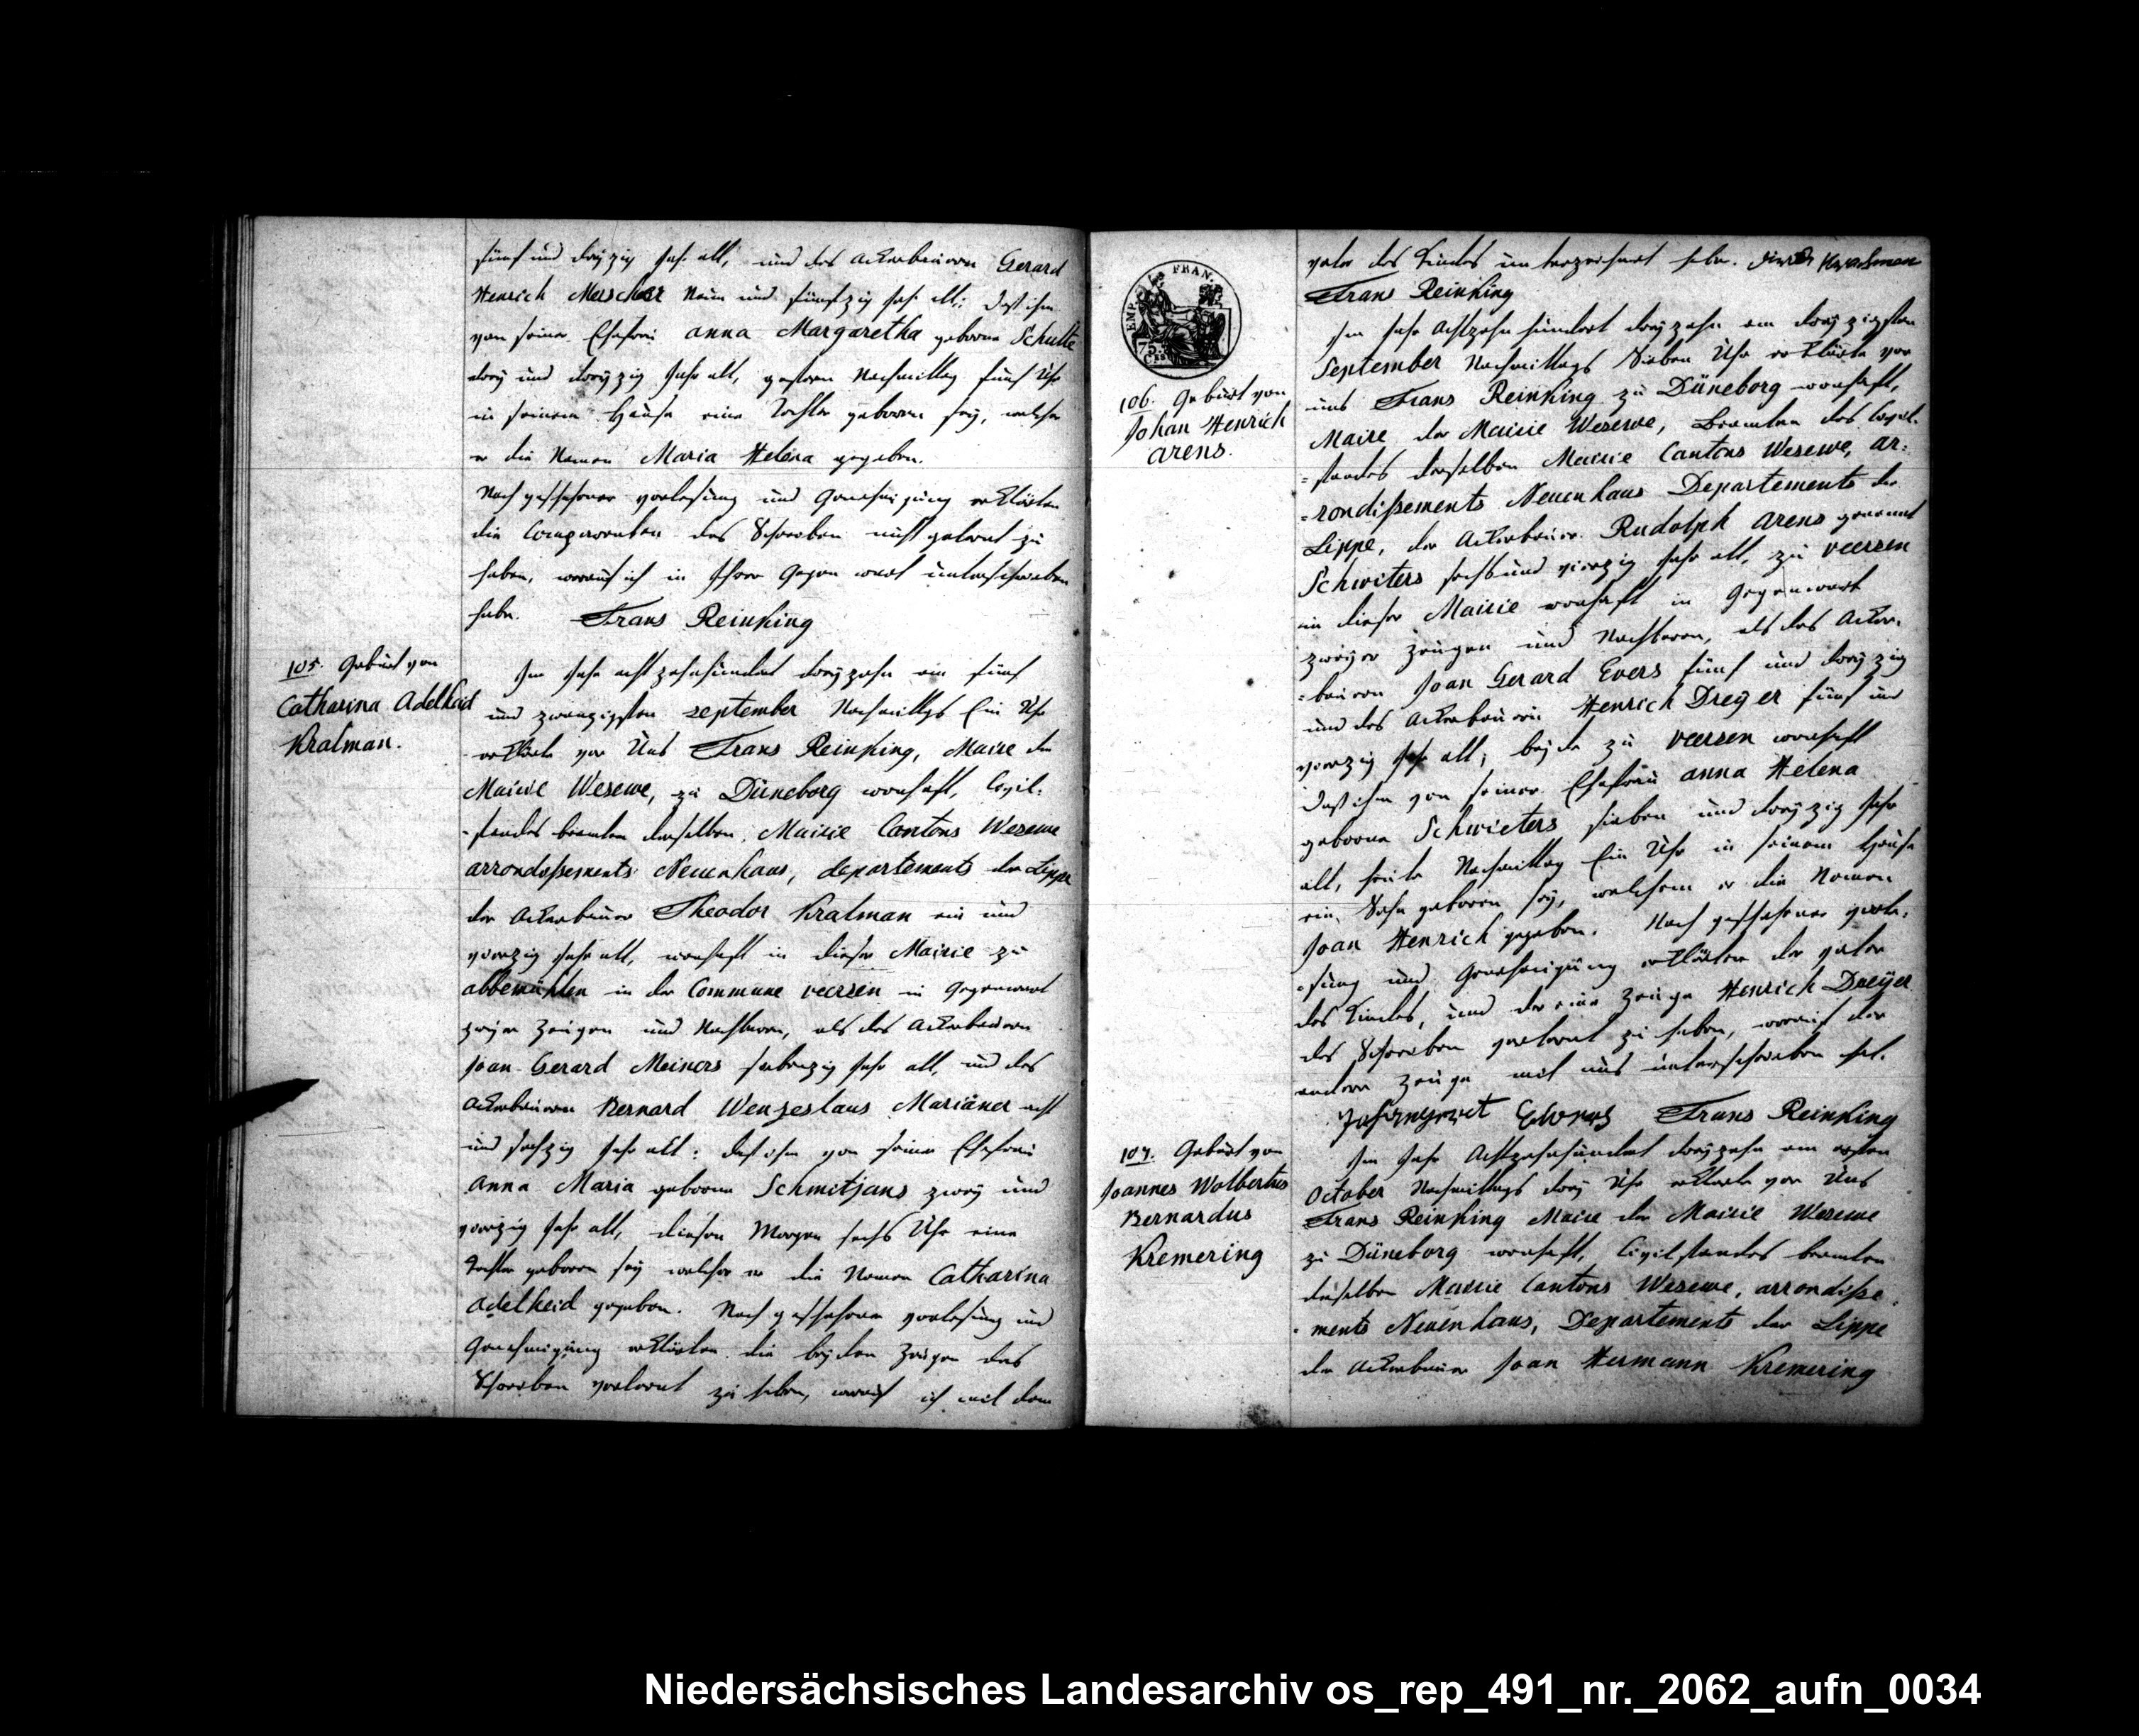 fünf und dreyzig Jahr alt, und des Ackerbauern Gerard
Henrich Merscher Neun und fünfzig Jahr alt; daß ihm
von seiner Ehefrau Anna Margaretha geborne Schulte
drey und dreyzig Jahr alt, gestern Nachmittag fünf Uhr
in seinem Hause eine Tochter geboren sey, welcher
er die Namen Maria Helena gegeben.
Nach geschehener Vorlesung und Genehmigung erklärten
die Comparenten das Schreiben nicht gelernt zu
haben, worauf ich in ihrer Gegenwart unterschrieben
habe. Frans Reinking
105. Geburt von
Catharina Adelheid
Kralman.
Im Jahr achtzehnhundert dreyzehn am fünf
und zwanzigsten September Nachmittags Ein Uhr
erklärte vor Uns Frans Reinking, Maire der
Mairie Wesewe, zu Düneborg wonhaft, Civil-
-standes beamten derselben Mairie Cantons Wesewe
arrondissements Neuenhaus, departements der Lippe
der Ackerbauer Theodor Kralman ein und
vierzig Jahr alt, wonhaft in dieser Mairie zu
abbemühlen in der Commune veersen in Gegenwart
zweier Zeugen und Nachbaren, als des Ackerbauern
Joan Gerard Meiners siebenzig Jahr alt, und des
Ackerbauern Bernard Wenzeslaus Mariäner acht
und sechzig Jahr alt: daß ihm von seiner Ehefrau
Anna Maria geborne Schmitjans zwey und
vierzig Jahr alt, diesen Morgen sechs Uhr eine
Tochter geboren sey welcher er die Namen Catharina
Adelheid gegeben. Nach geschehener Vorlesung und
Genehmigung erklärten die beyden Zeugen das
Schreiben verlernt zu haben, worauf ich mit dem
Vater des Kindes unterzeichnet habe.
Frans Reinking
EMP. FRAN.
75. C.
106. Geburt von
Johan Henrich
Arens.
Im Jahr Achtzehnhundert dreyzehn am dreyzigsten
September Nachmittags Sieben Uhr erklärte vor
uns Frans Reinking zu Düneborg wonhaft,
Maire der Mairie Wesewe, Beamten des Civil-
=standes derselben Mairie Cantons Wesewe, Ar=
=rondissements Neuenhaus Departements der
Lippe, der Ackerbauer Rudolph Arens genannt
Schwiters sechs und vierzig Jahr alt, zu veersen
in dieser Mairie wonhaft in Gegenwart
zweyer Zeugen und Nachbaren, als des Acker-
=bauern Joan Gerard Evers fünf und dreyzig
und des Ackerbauern Henrich Dreyer fünf und
vierzig Jahr alt; beyde zu veersen wonhaft
daß ihm von seiner Ehefrau Anna Helena
geborne Schwieters sieben und dreyzig Jahr
alt, heute Nachmittag Ein Uhr in seinem Hause
ein Sohn geboren sey, welchem er die Namen
Joan Henrich gegeben. Nach geschehener Vorle-
=sung und Genehmigung erklärten der Vater
des Kindes, und der eine Zeuge Henrich Dreyer
das Schreiben verlernt zu haben, worauf der
andere Zeuge mit uns unterschrieben hat.
Frans Reinking
107. Geburt von
Joannes Wolbertus
Bernardus
Kremering
Im Jahr Achtzehnhundert dreyzehn am ersten
October Nachmittags drey Uhr erklärte vor Uns
Frans Reinking Maire der Mairie Wesewe
zu Düneborg wonhaft, Civilstandes beamten
derselben Mairie Cantons Wesewe, arrondisse-
-ments Neuenhaus, Departements der Lippe
der Ackerbauer Joan Hermann Kremering
Niedersächsisches Landesarchiv os_rep_491_nr._2062_aufn_0034